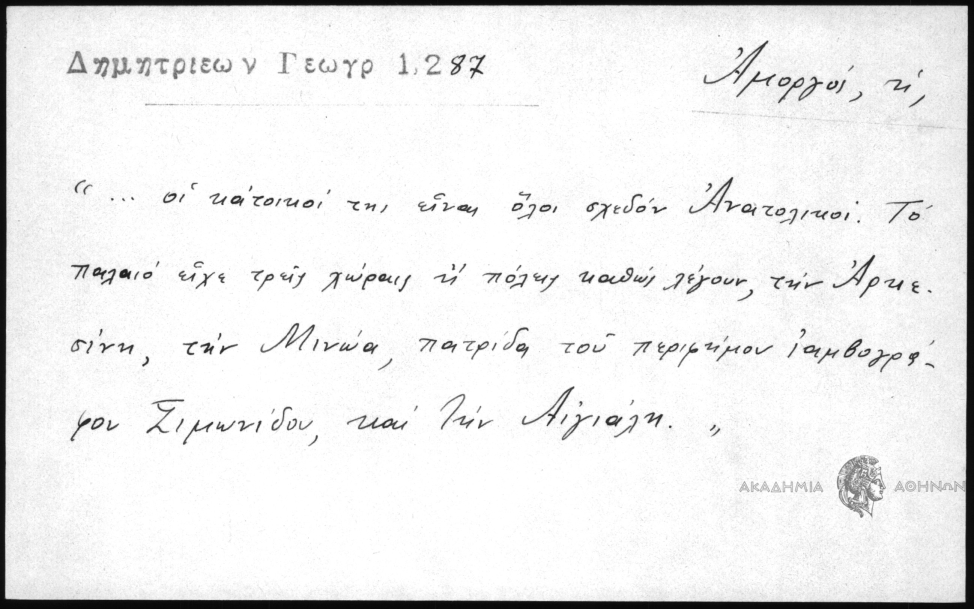 Δημητριεων Γεωγρ 1,287
Ἀμοργός, ἡ,
“ ... οἱ κάτοικοί της εἶναι ὅλοι σχεδόν Ἀνατολικοί. Τό
παλαιό εἶχε τρεῖς χώραις ἤ πόλεις καθώς λέγουν, τήν Ἀρκε-
σίνη, τήν Μινώα, πατρίδα τοῦ περιφήμου ἰαμβογρά-
φου Σιμωνίδου, καί τήν Αἰγιάλη. „
ΑΚΑΔΗΜΙΑ ΑΘΗΝΩΝ